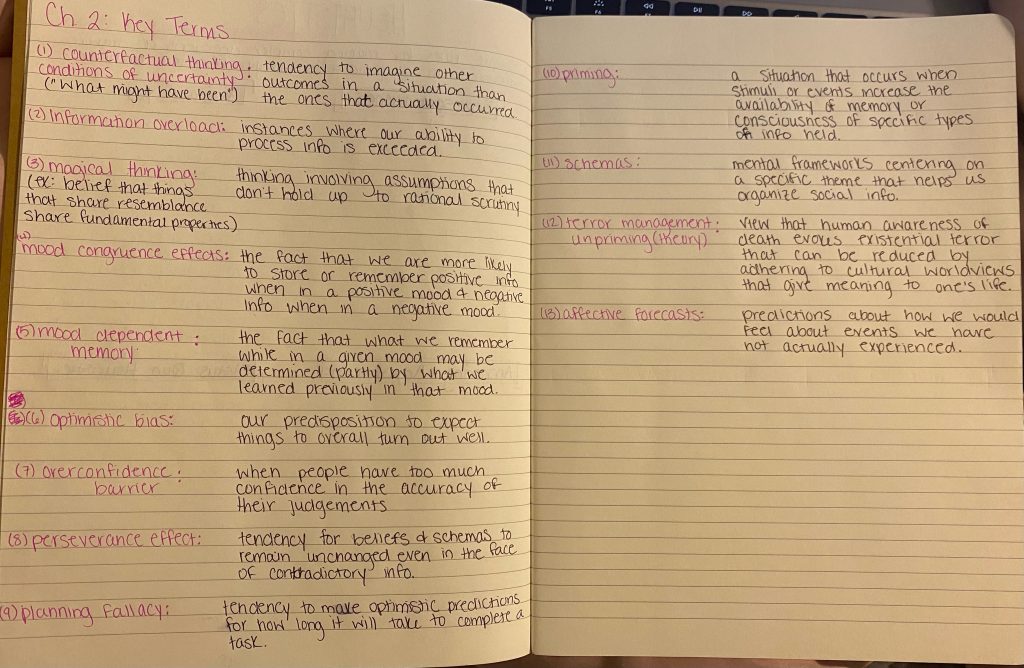 Ch 2: Key Terms
(1) counterfactual thinking: tendency to imagine other
conditions of uncertainty: outcomes in a situation than
("What might have been") the ones that actually occurred.
(2) Information overload: instances where our ability to
process info is exceeded.
(3) magical thinking: thinking involving assumptions that
(ex: belief that things don't hold up to rational scrutiny
that share resemblance
share fundamental properties)
(4)
mood congruence effects: the fact that we are more likely
to store or remember positive info
when in a positive mood & negative
info when in a negative mood.
(5) mood dependent : the fact that what we remember
memory: while in a given mood may be
determined (partly) by what we
learned previously in that mood.
(6) optimistic bias: our predisposition to expect
things to overall turn out well.
(7) overconfidence : when people have too much
barrier confidence in the accuracy of
their judgements
(8) perseverance effect: tendency for beliefs & schemas to
remain unchanged even in the face
of contradictory info.
(9) planning fallacy: tendency to make optimistic predictions
for how long it will take to complete a
task.
(10) priming: a situation that occurs when
stimuli or events increase the
availability of memory or
consciousness of specific types
of info held.
(11) schemas: mental frameworks centering on
a specific theme that helps us
organize social info.
(12) terror management: view that human awareness of
unpriming (theory) death evokes existential terror
that can be reduced by
adhering to cultural worldviews
that give meaning to one's life.
(13) affective forecasts: predictions about how we would
feel about events we have
not actually experienced.